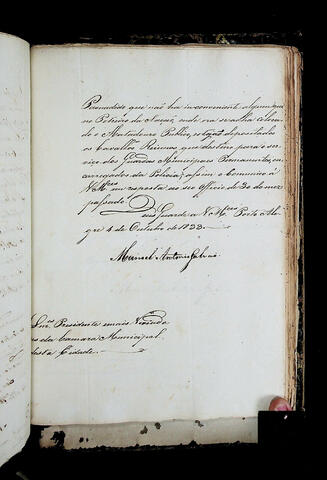 Persuadido que não ha inconveniente algum que
no Potreiro da Varzea, onde na se acha coloca-
do o Matadouro Publico, sejão depositados
os Cavallos Reiunos que destino para o ser-
viço das Guardas Municipaes Permanentes, en-
carregados da Policia; assim o Comunico á
V. Mces em resposta ao seo Officio de 30 do mez
passado. Deus Guarde a V. Mces Porto Ale-
gre 4 de Outubro de 1833.
Manoel Antonio Galvão
Snr. Presidente e mais Vereado
es da Camara Municipal
desta Cidade.